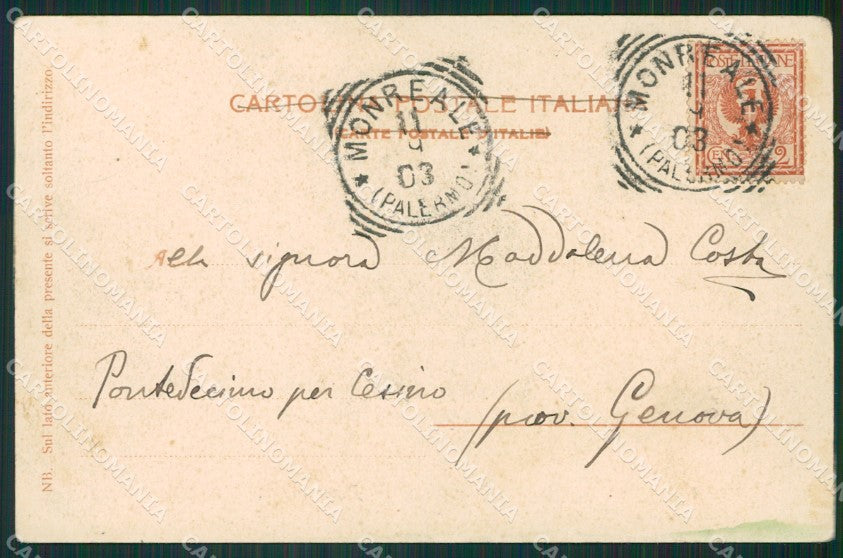 CARTOLINA POSTALE ITALIANA
CARTE POSTALE D'ITALIE
MONREALE
11
9
03
(PALERMO)
MONREALE
11
9
03
(PALERMO)
POSTE ITALIANE
2
Alla signora Maddalena Costa
Pontedecimo per Cesino
(prov. Genova)
NB. Sul lato anteriore della presente si scrive soltanto l'indirizzo
CARTOLINOMANIA